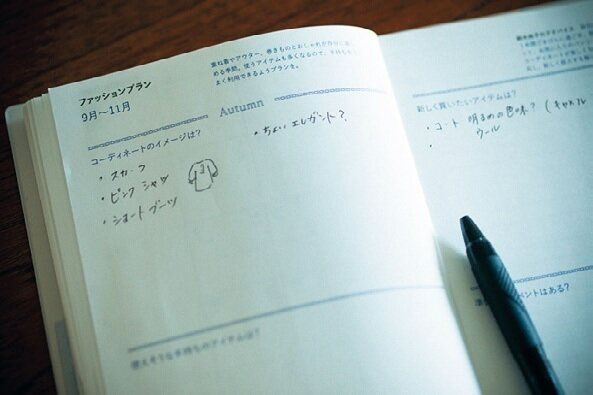 ファッションプラン
9月〜11月
重ね着やアウター、巻きものとおしゃれが
める季節。使うアイテムも多くなるので、手持ちを
まく利用できるようプランを。
Autumn
コーディネートのイメージは?
・スカーフ
・ピンク シャツ
・ショートブーツ
・ちょい エレガント?
使えそうな手持ちのアイテムは?
新しく買いたいアイテムは?
・コート 明るめの色味?
ウール
・
ベントはある?